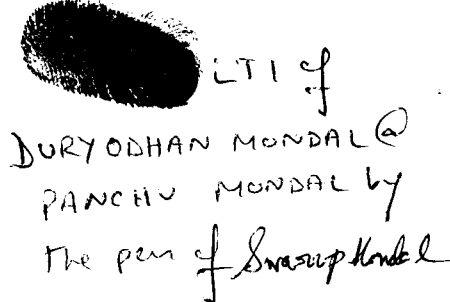 LTI of
DURYODHAN MONDAL @
PANCHU MONDAL by
the pen of Swarup Mondal